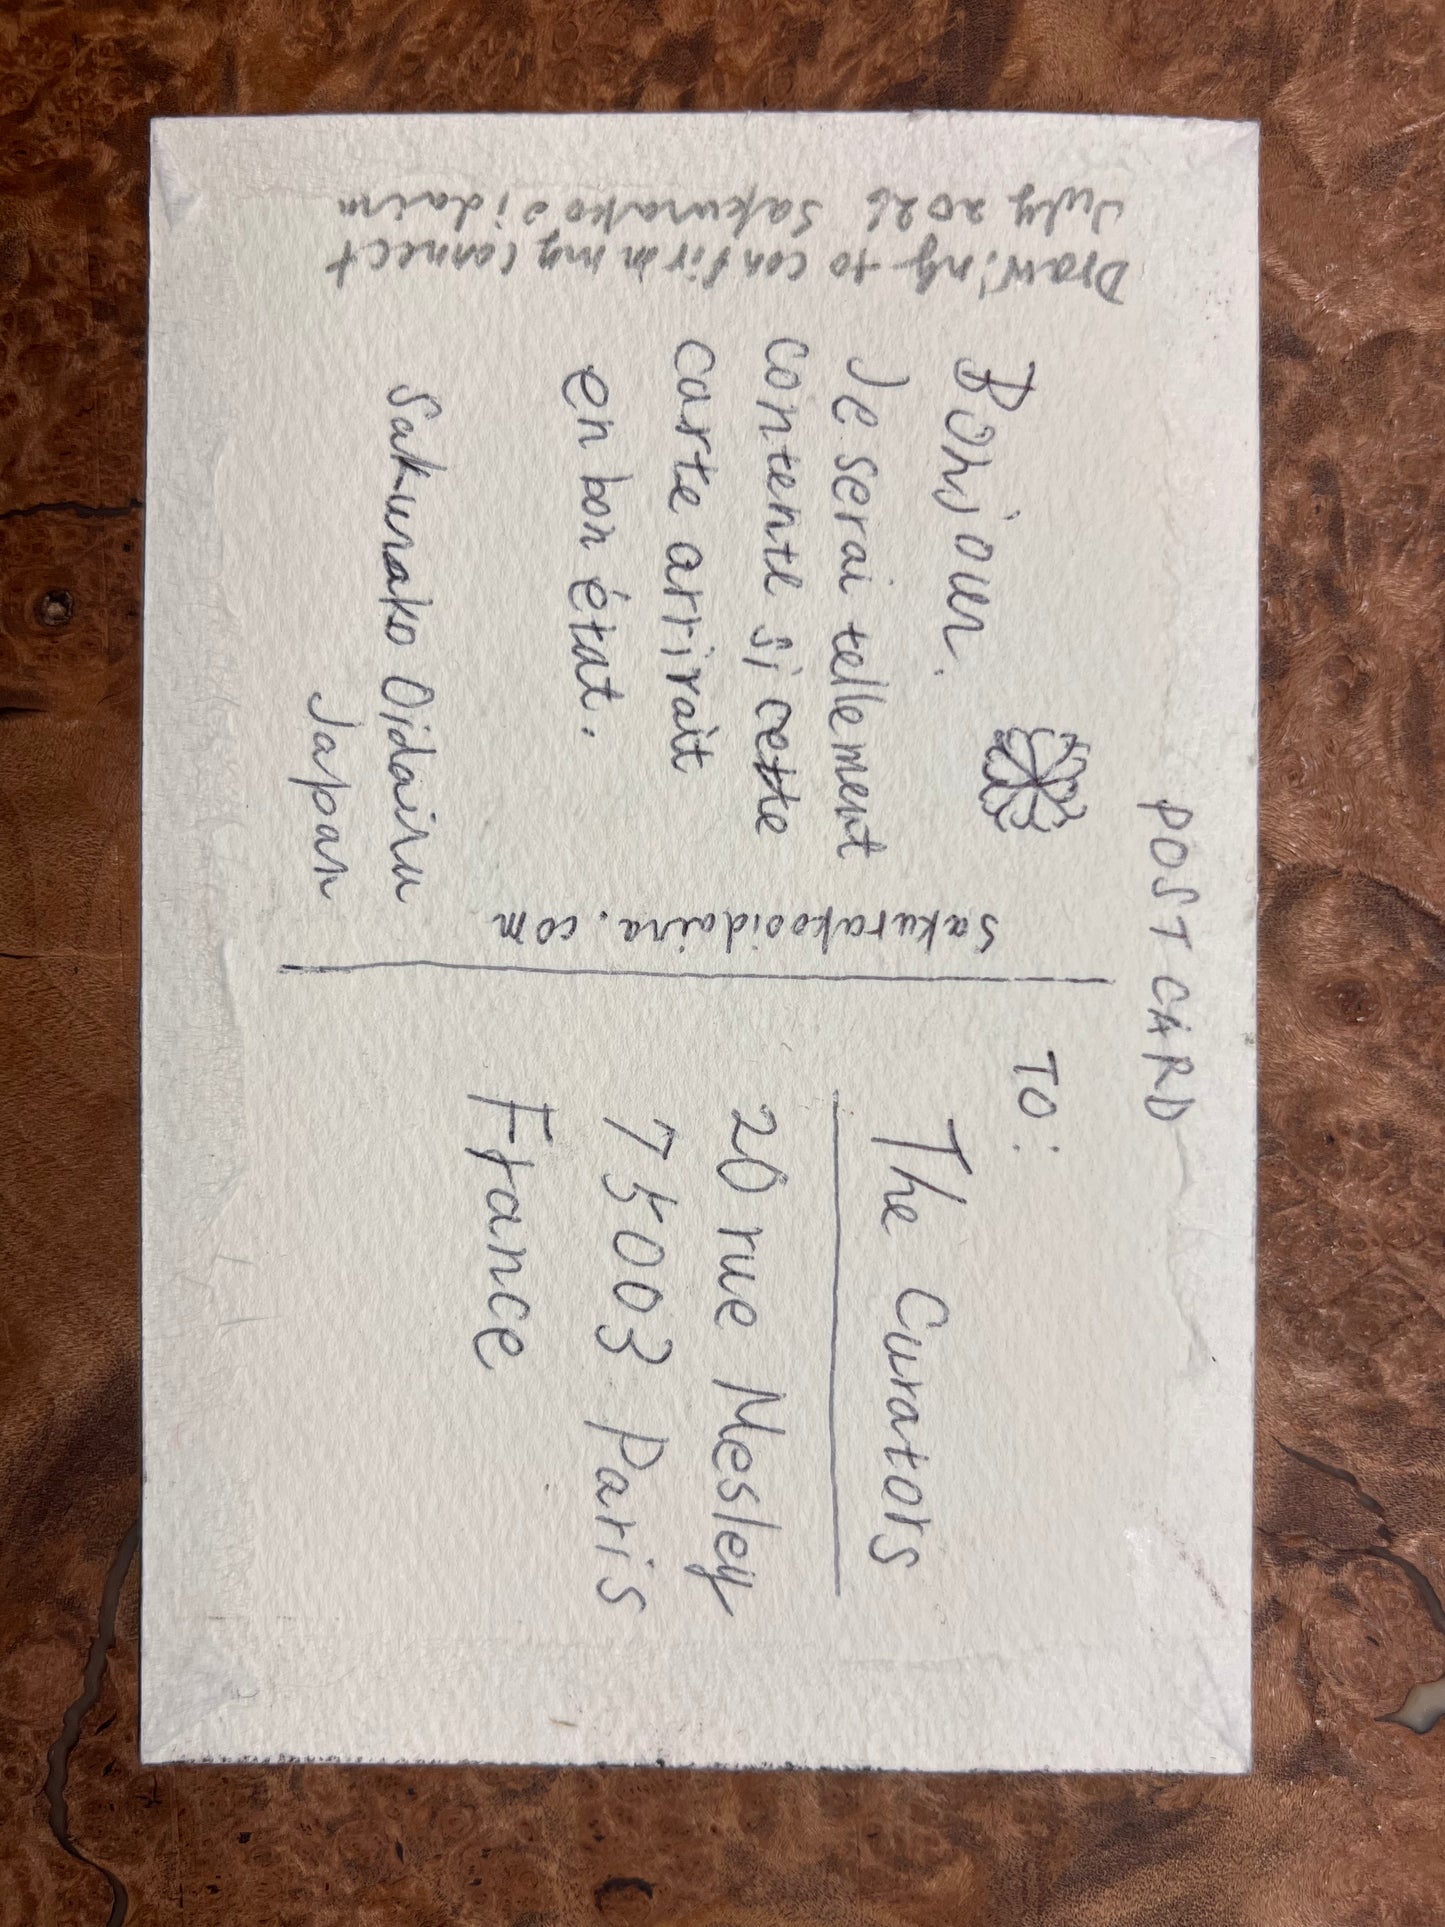 POST CARD
Bonjour.
Je serai tellement
contente si cette
carte arrirait
en bon état.
Sakurako Oidaira
Japan
sakurakooidaira.com
TO:
The Curators
20 rue Mesley
75003 Paris
France
Drawing to confirm my connect
July 2026 Sakurako Oidaira